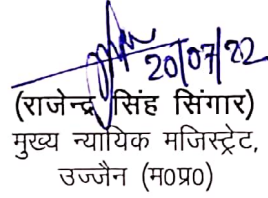 20/07/22
(राजेन्द्र सिंह सिंगार)
मुख्य न्यायिक मजिस्ट्रेट,
उज्जैन (म0प्र0)